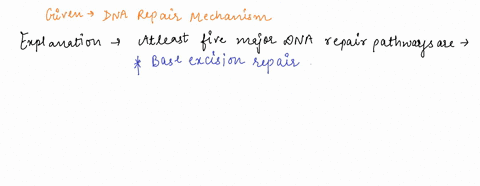 Given → DNA Repair Mechanism
Explanation → Atleast five major DNA repair pathways are →
* Base excision repair.